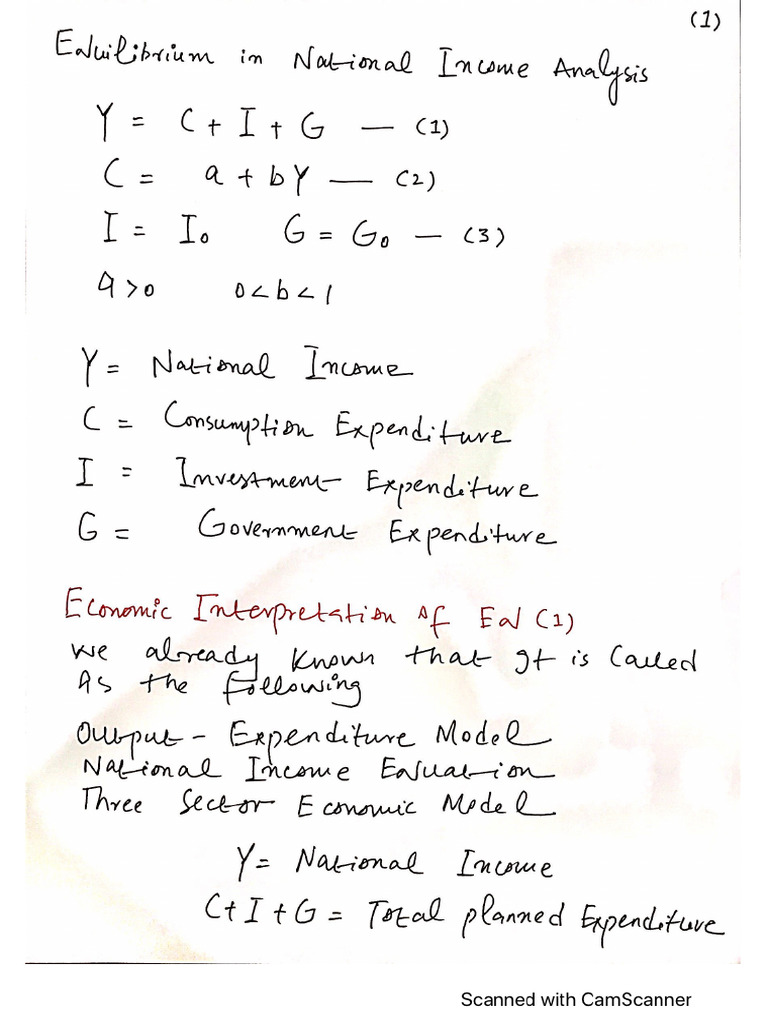 (1)
Equilibrium in National Income Analysis
Y = C + I + G — (1)
C = a + bY — (2)
I = I₀ G = G₀ — (3)
a > 0 0 < b < 1
Y = National Income
C = Consumption Expenditure
I = Investment Expenditure
G = Government Expenditure
Economic Interpretation of Eq (1)
We already known that It is Called
As the following
Output - Expenditure Model
National Income Equation
Three Sector Economic Model
Y = National Income
C + I + G = Total planned Expenditure
Scanned with CamScanner